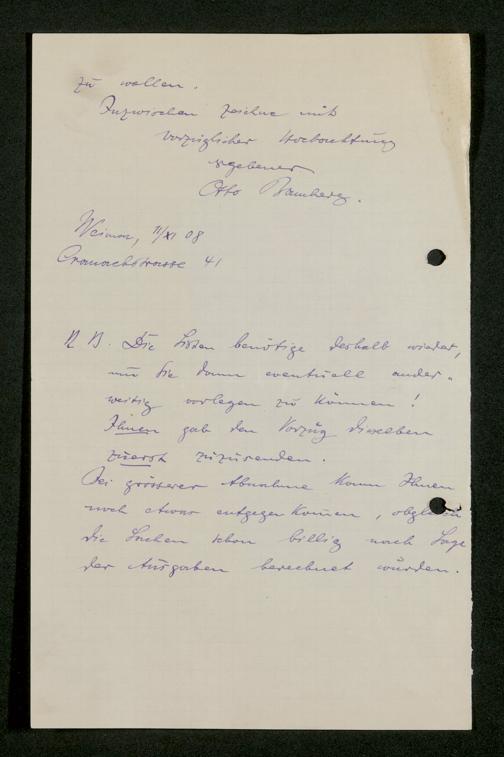 zu wollen.
Inzwischen zeichne mit
vorzüglicher Hochachtung
ergebener
Otto Bamberg.
Weimar, 11/XI 08
Cranachstrasse 41
N B. Die Listen benötige deshalb wieder,
um sie dann eventuell ander-
weitig vorlegen zu können!
Ihnen gab den Vorzug dieselben
zuerst zuzusenden.
Bei grösserer Abnahme kann Ihnen
noch etwas entgegen kommen, obgleich
die Sachen schon billig nach Lage
der Ausgaben berechnet wurden.